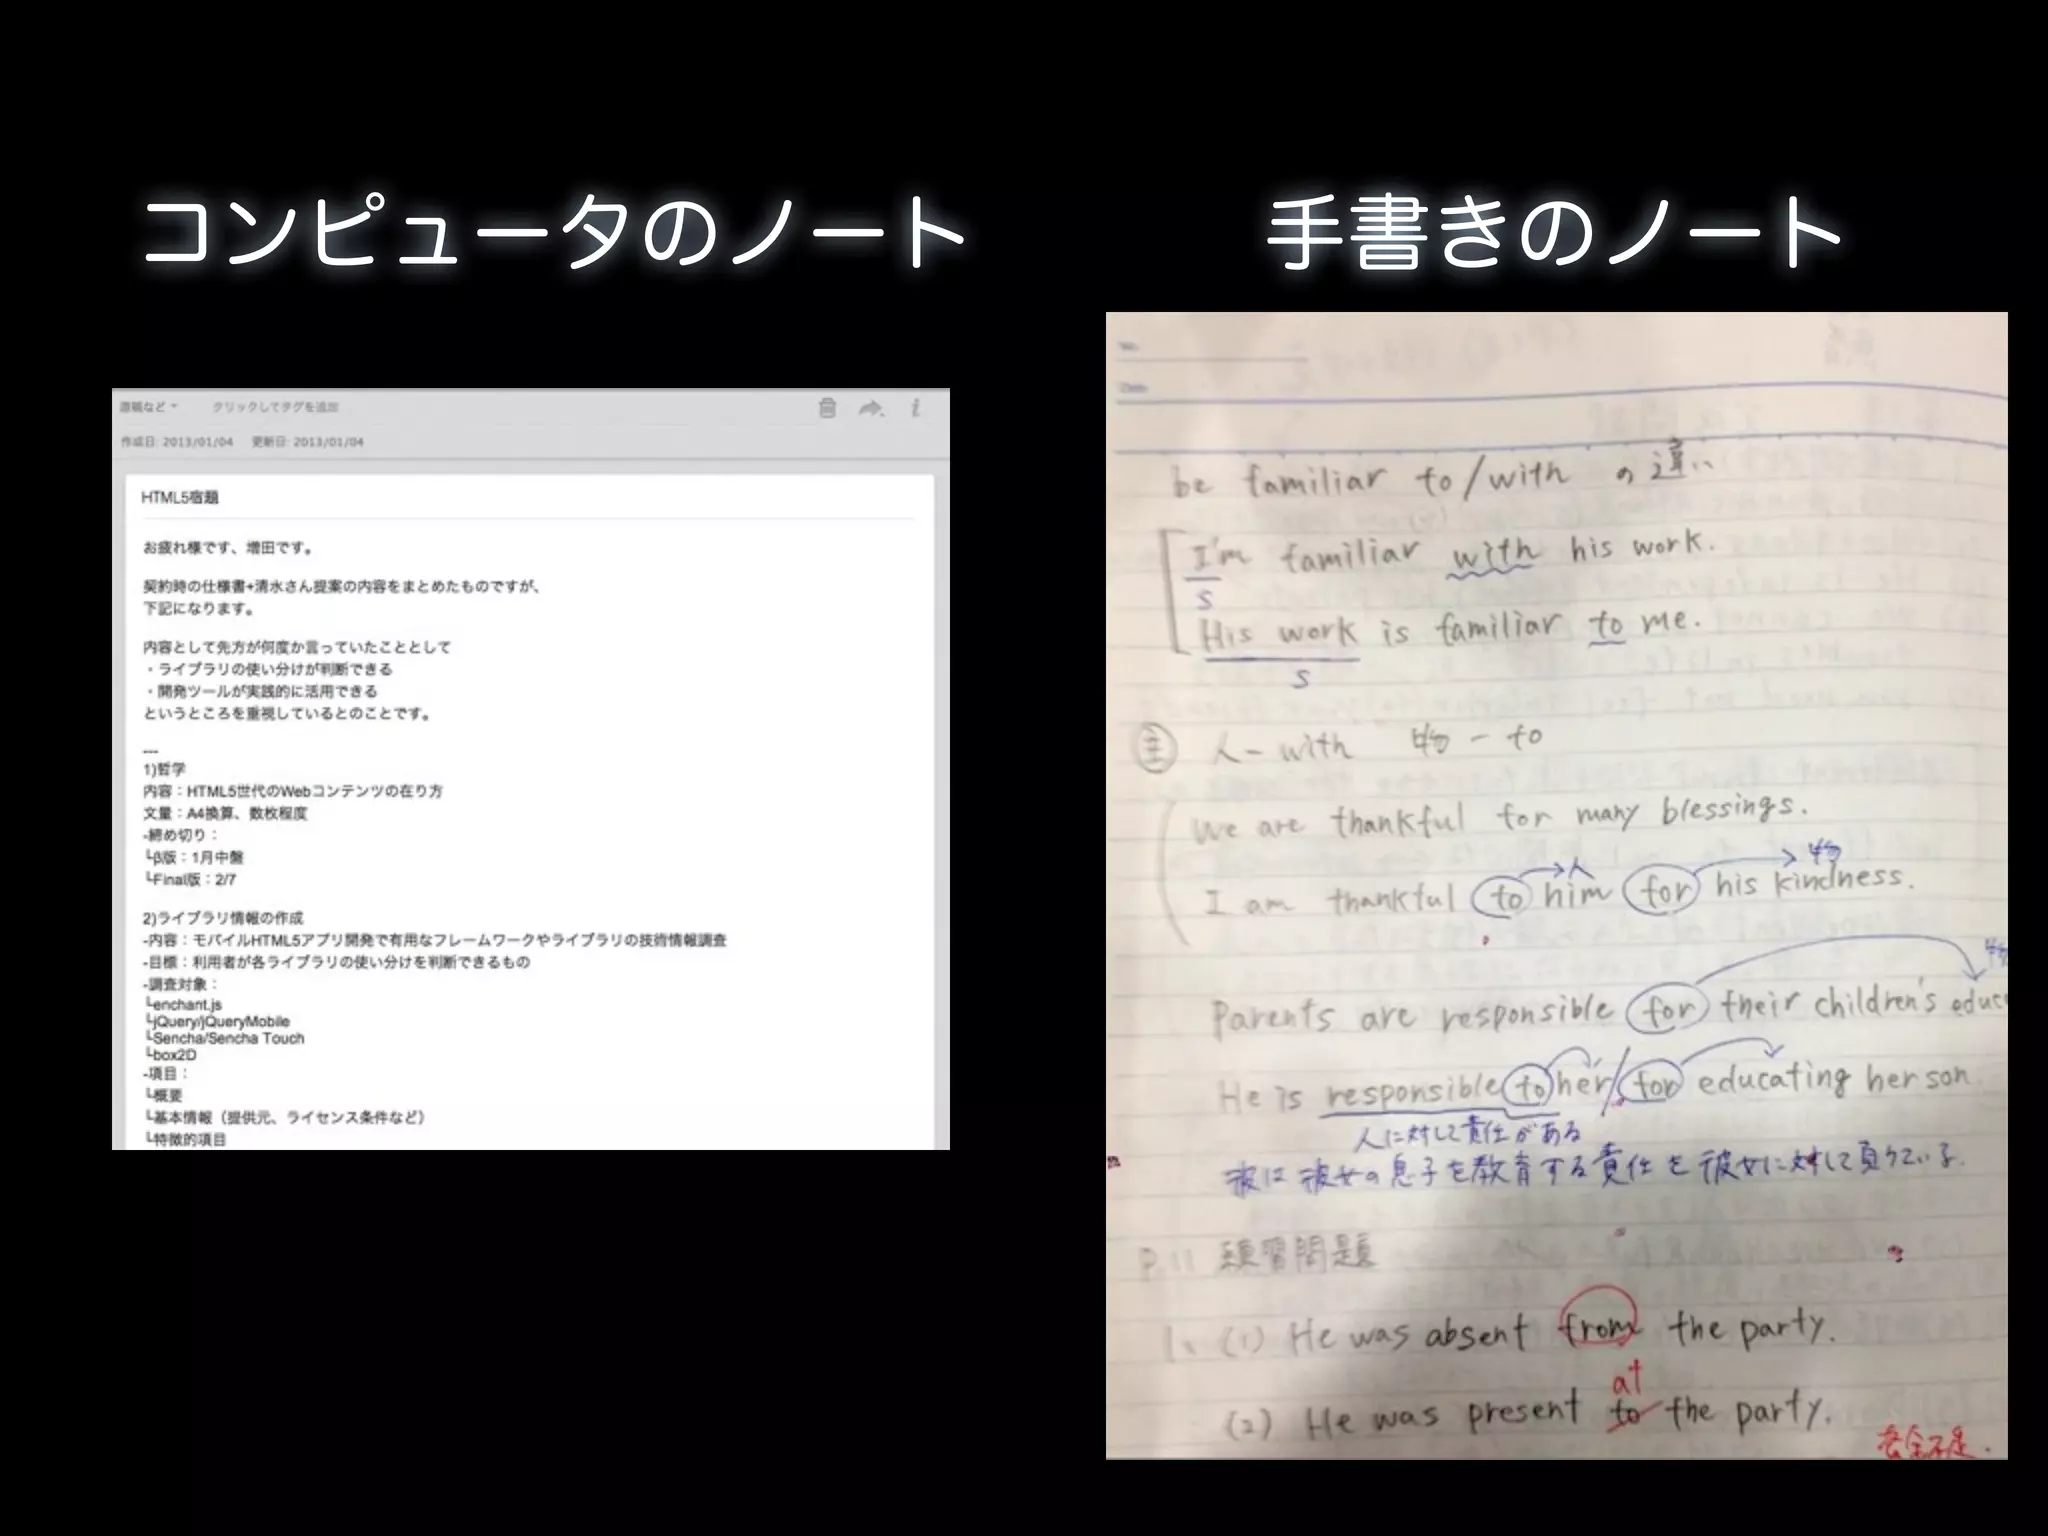 コンピュータのノート
手書きのノート
原稿など クリックしてタグを追加
作成日: 2013/01/04 更新日: 2013/01/04
HTML5宿題
お疲れ様です、増田です。
契約時の仕様書+清水さん提案の内容をまとめたものですが、
下記になります。
内容として先方が何度か言っていたこととして
・ライブラリの使い分けが判断できる
・開発ツールが実践的に活用できる
というところを重視しているとのことです。
---
1)哲学
内容：HTML5世代のWebコンテンツの在り方
文量：A4換算、数枚程度
-締め切り：
└β版：1月中盤
└Final版：2/7
2)ライブラリ情報の作成
-内容：モバイルHTML5アプリ開発で有用なフレームワークやライブラリの技術情報調査
-目標：利用者が各ライブラリの使い分けを判断できるもの
-調査対象：
└enchant.js
└jQuery/jQueryMobile
└Sencha/Sencha Touch
└box2D
-項目：
└概要
└基本情報（提供元、ライセンス条件など）
└特徴的項目
be familiar to/with の違い
I'm familiar with his work.
S
His work is familiar to me.
S
主 人-with 物-to
We are thankful for many blessings.
人 物
I am thankful to him for his kindness.
物
Parents are responsible for their children's educ
He is responsible to her/for educating her son.
人に対して責任がある
彼は彼女の息子を教育する責任を彼女に対して負っている.
P.11 練習問題
1. (1) He was absent from the party.
at
(2) He was present to the party.